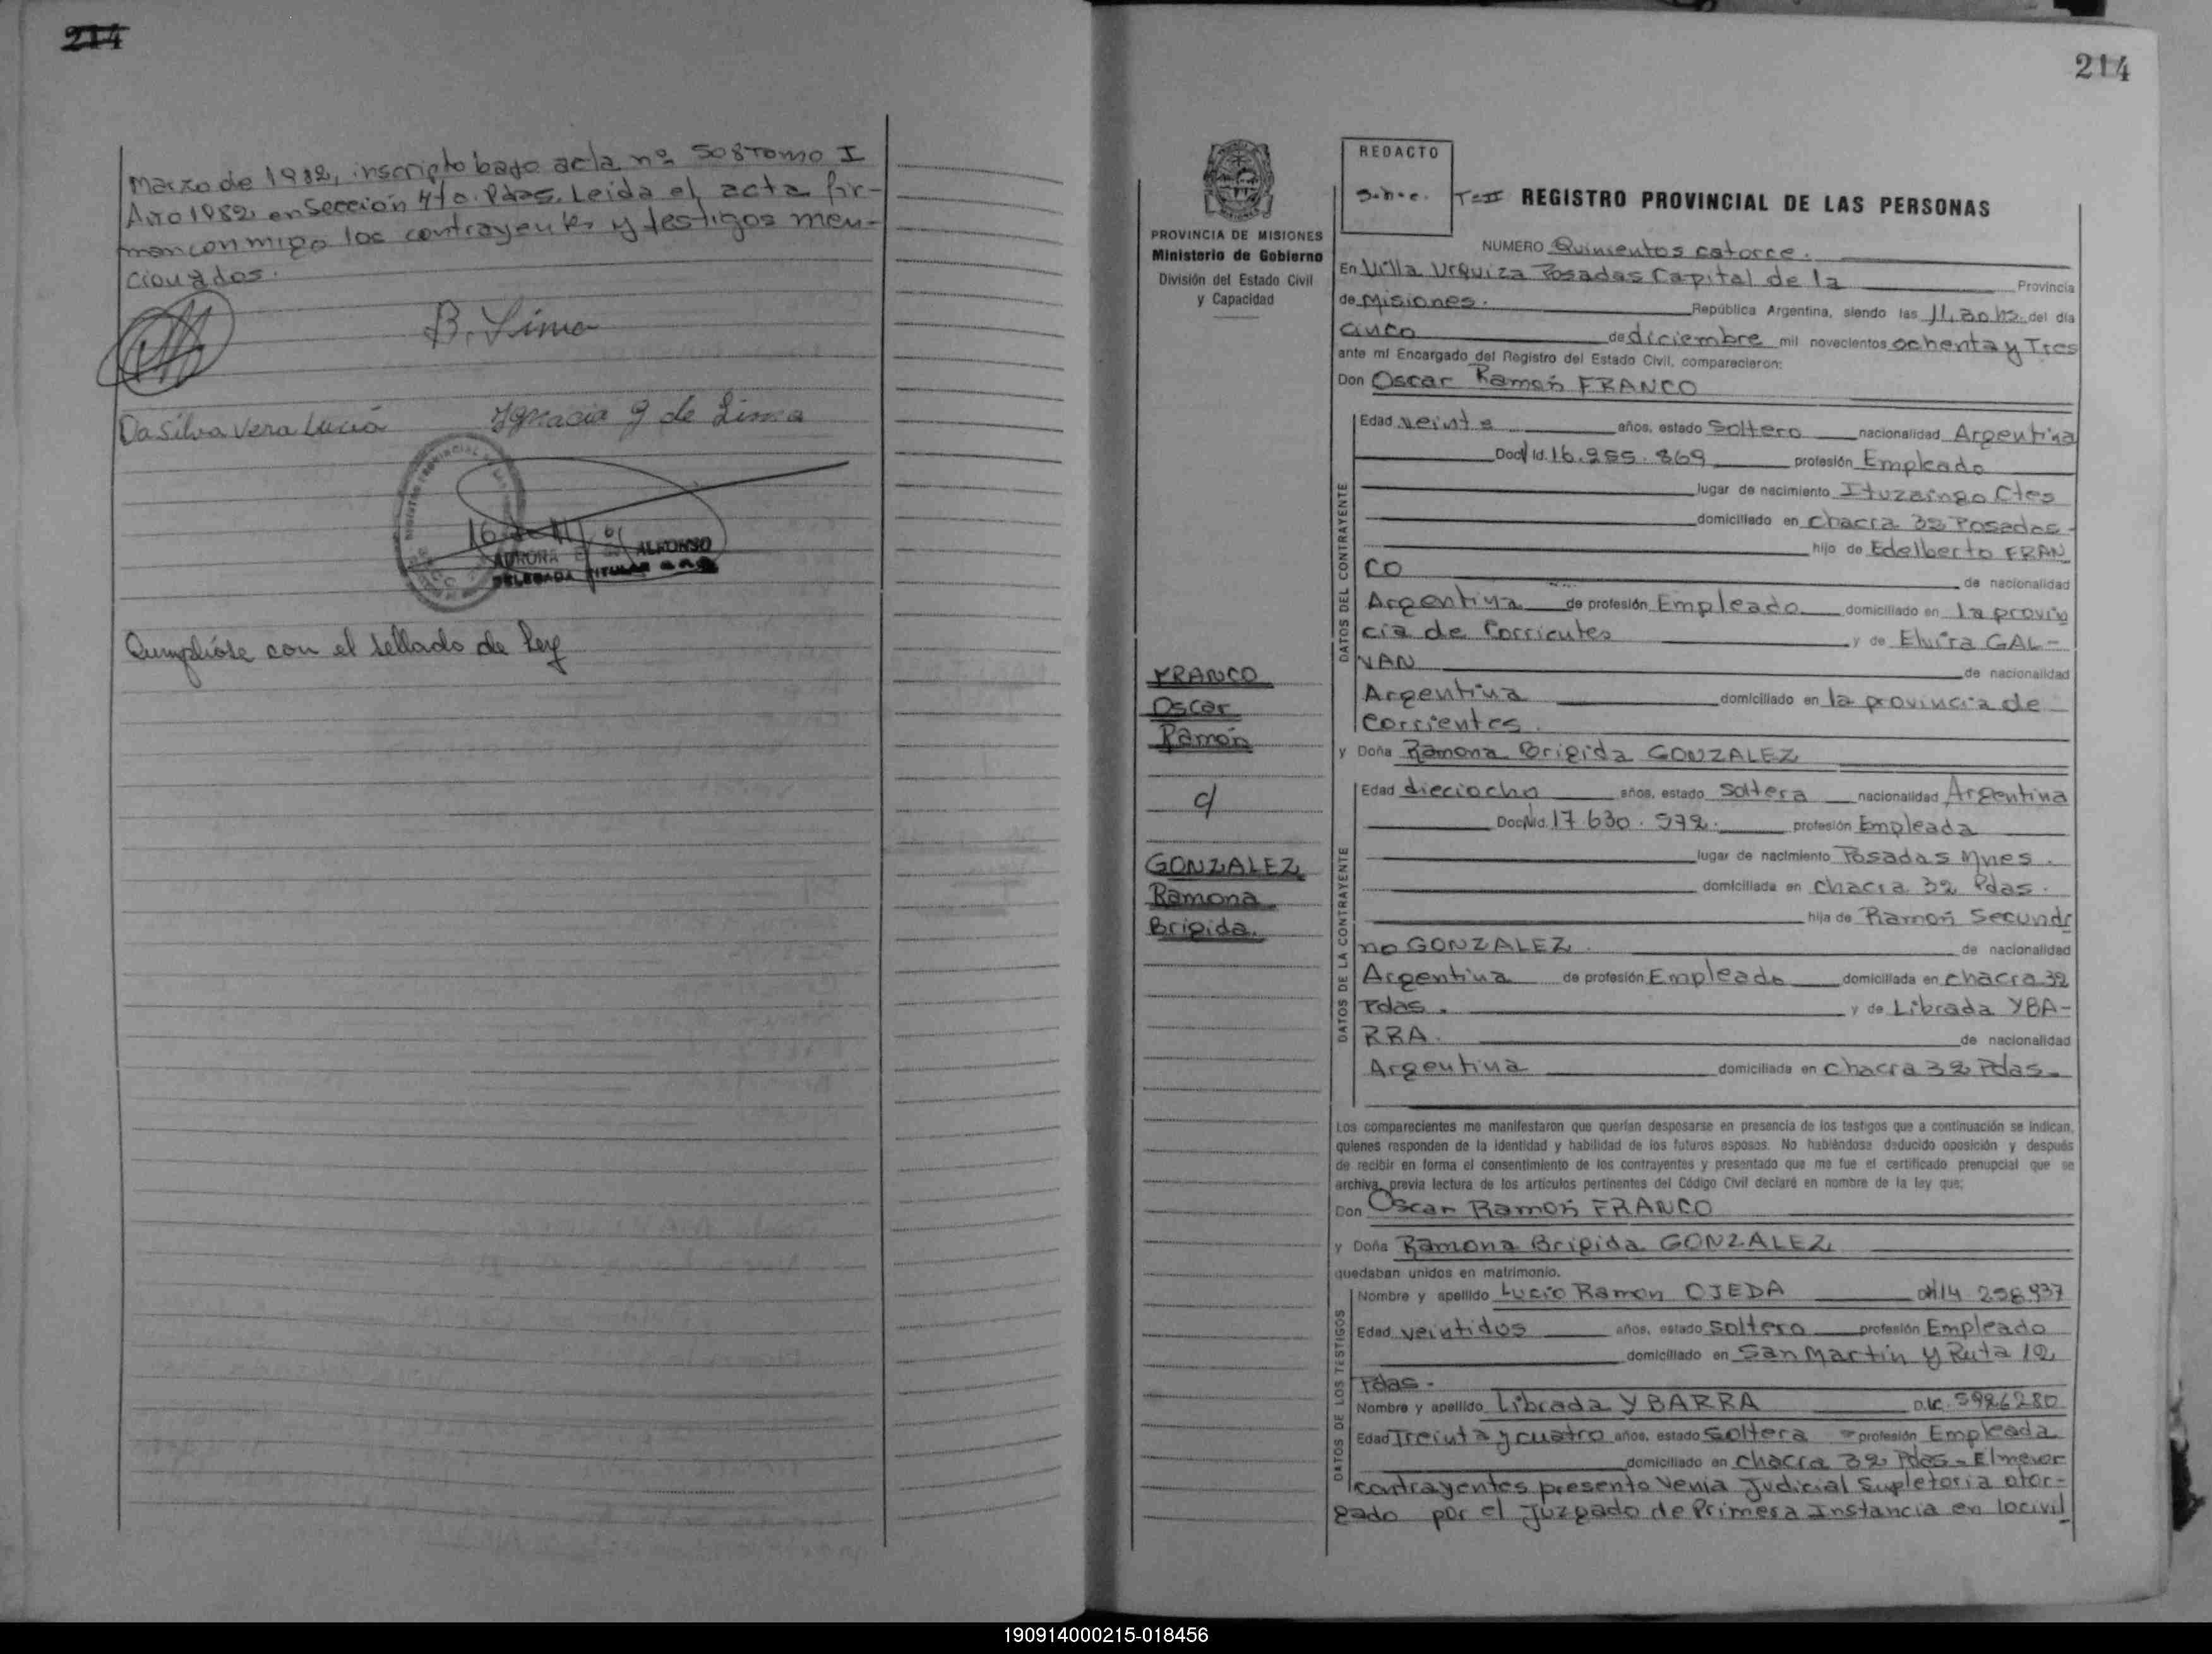 214
Marzo de 1982, inscripto bajo acta nº 508 Tomo I
Año 1982 en Sección 4to. Pdas. Leida el acta fir-
man conmigo los contrayentes y testigos men-
cionados.
B. Lima
Da Silva Vera Lucia
Ygnacia G de Lima
AURORA E ALFONSO
DELEGADA TITULAR
Cumplióse con el sellado de Ley
214
PROVINCIA DE MISIONES
Ministerio de Gobierno
División del Estado Civil
y Capacidad
FRANCO
Oscar
Ramón
c/
GONZALEZ
Ramona
Brigida.
REDACTO
S.h.e.
T=II REGISTRO PROVINCIAL DE LAS PERSONAS
NUMERO Quinientos catorce.
En Villa Urquiza Posadas Capital de la Provincia
de Misiones. República Argentina, siendo las 11,30 hs. del día
cinco de diciembre mil novecientos ochenta y Tres
ante mí Encargado del Registro del Estado Civil, comparecieron:
Don Oscar Ramón FRANCO
DATOS DEL CONTRAYENTE
Edad veinte años, estado Soltero nacionalidad Argentina
Doc. Id. 16.955.869 profesión Empleado
lugar de nacimiento Ituzaingo Ctes
domiciliado en chacra 32 Posadas-
hijo de Edelberto FRAN
CO de nacionalidad
Argentina de profesión Empleado domiciliado en la provin
cia de Corrientes y de Elvira GAL-
VAN de nacionalidad
Argentina domiciliado en la provincia de
Corrientes.
y Doña Ramona Brigida GONZALEZ
DATOS DE LA CONTRAYENTE
Edad dieciocho años, estado soltera nacionalidad Argentina
Doc. Id. 17.630.572. profesión Empleada
lugar de nacimiento Posadas Mnes.
domiciliada en chacra 32 Pdas.
hija de Ramón Secundi
no GONZALEZ. de nacionalidad
Argentina de profesión Empleado domiciliada en chacra 32
Pdas. y de Librada YBA-
RRA. de nacionalidad
Argentina domiciliada en chacra 32 Pdas.
Los comparecientes me manifestaron que querían desposarse en presencia de los testigos que a continuación se indican,
quienes responden de la identidad y habilidad de los futuros esposos. No habiéndose deducido oposición y después
de recibir en forma el consentimiento de los contrayentes y presentado que me fue el certificado prenupcial que se
archiva, previa lectura de los artículos pertinentes del Código Civil declaré en nombre de la ley que;
Don Oscar Ramón FRANCO
y Doña Ramona Brigida GONZALEZ
quedaban unidos en matrimonio.
DATOS DE LOS TESTIGOS
Nombre y apellido Lucio Ramon OJEDA 14 258937
Edad veintidos años, estado soltero profesión Empleado
domiciliado en San Martín y Ruta 12
Pdas-
Nombre y apellido Librada YBARRA 5926280
Edad Treinta y cuatro años, estado soltera profesión Empleada
domiciliado en chacra 32 Pdas- El menor
contrayentes presento Venia Judicial Supletoria otor-
gado por el Juzgado de Primera Instancia en locivil
190914000215-018456